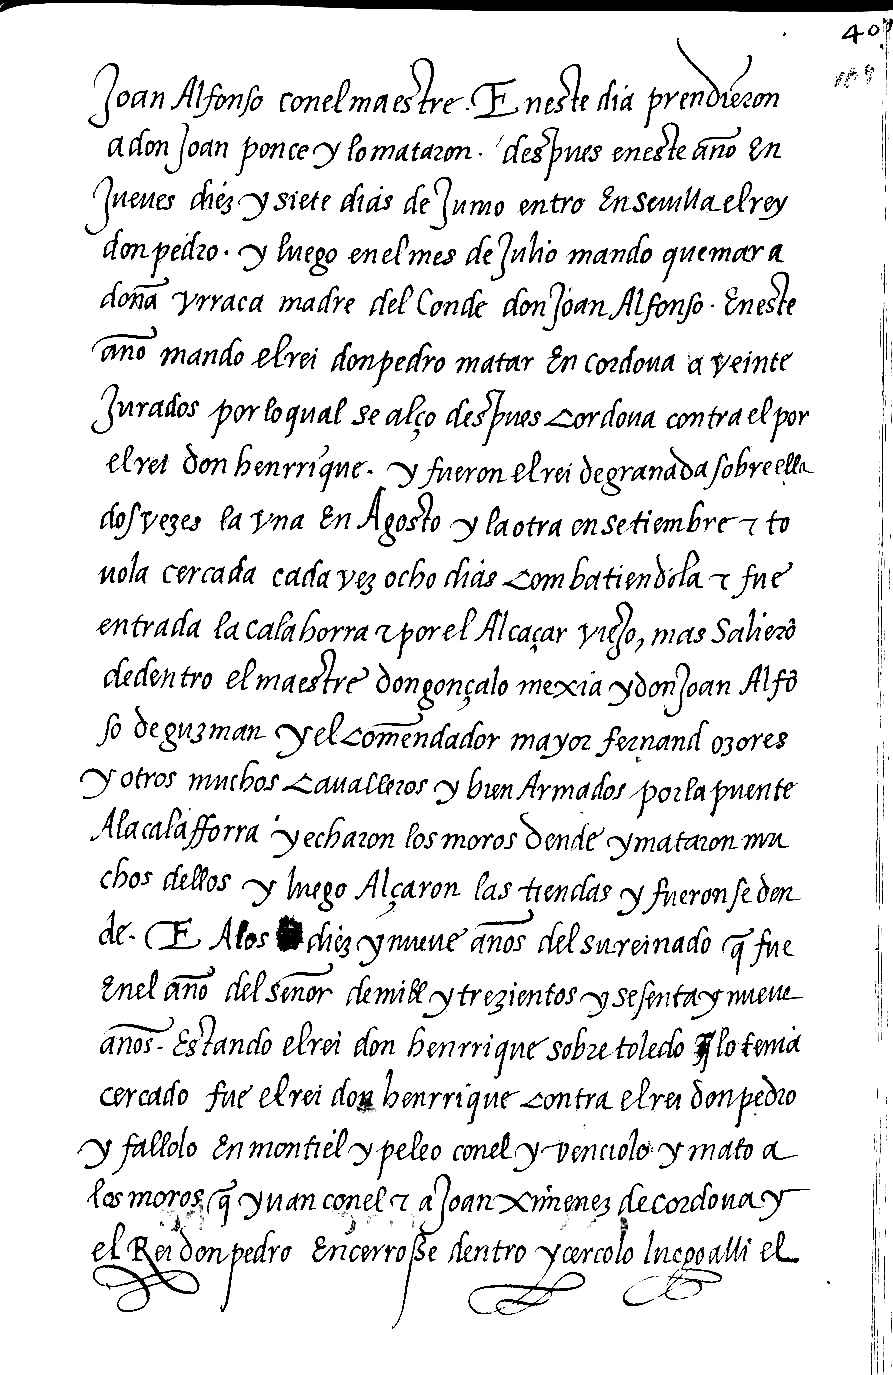 40
Joan Alfonso conel maestre. E neste dia prendieron
a don Joan ponce y lo mataron. despues eneste año En
Jueves diéz y siete dias de Junio entro En sevilla el rey
don pedro. y luego enel mes de Julio mando quemar a
doña yrraca madre del Conde don Joan Alfonso. Eneste
año mando el rei don pedro matar En cordova a veinte
Jurados por lo qual se alço despues cordova contra el por
el rei don henrrique. y fueron el rei de granada sobre ella
dos vezes la vna En Agosto y la otra en setiembre ⁊ to
uola cercada cada vez ocho dias combatiendola ⁊ fue
entrada la calahorra ⁊ por el Alcaçar viejo, mas Salierõ
de dentro el maestre don gonçalo mexia y don Joan Alfõ
so de guzman y el comẽndador mayor fernand ozores
y otros muchos cavalleros y bien Armados por la puente
A la calafforra y echaron los moros dende y mataron mu
chos dellos y luego Alçaron las tiendas y fueron se den
de. E A los diéz y nueve años del su reinado q̃ fue
Enel año del señor de mill y trezientos y sesenta y nueve
años. Estando el rei don henrrique sobre toledo q̃ lo tenia
cercado fue el rei don henrrique contra el rei don pedro
y fallolo En montiel y peleo conel y venciolo y mato a
los moros q̃ yuan conel ⁊ a Joan ximenez de cordova y
el Rei don pedro Encerrosse dentro y cercolo luego alli el